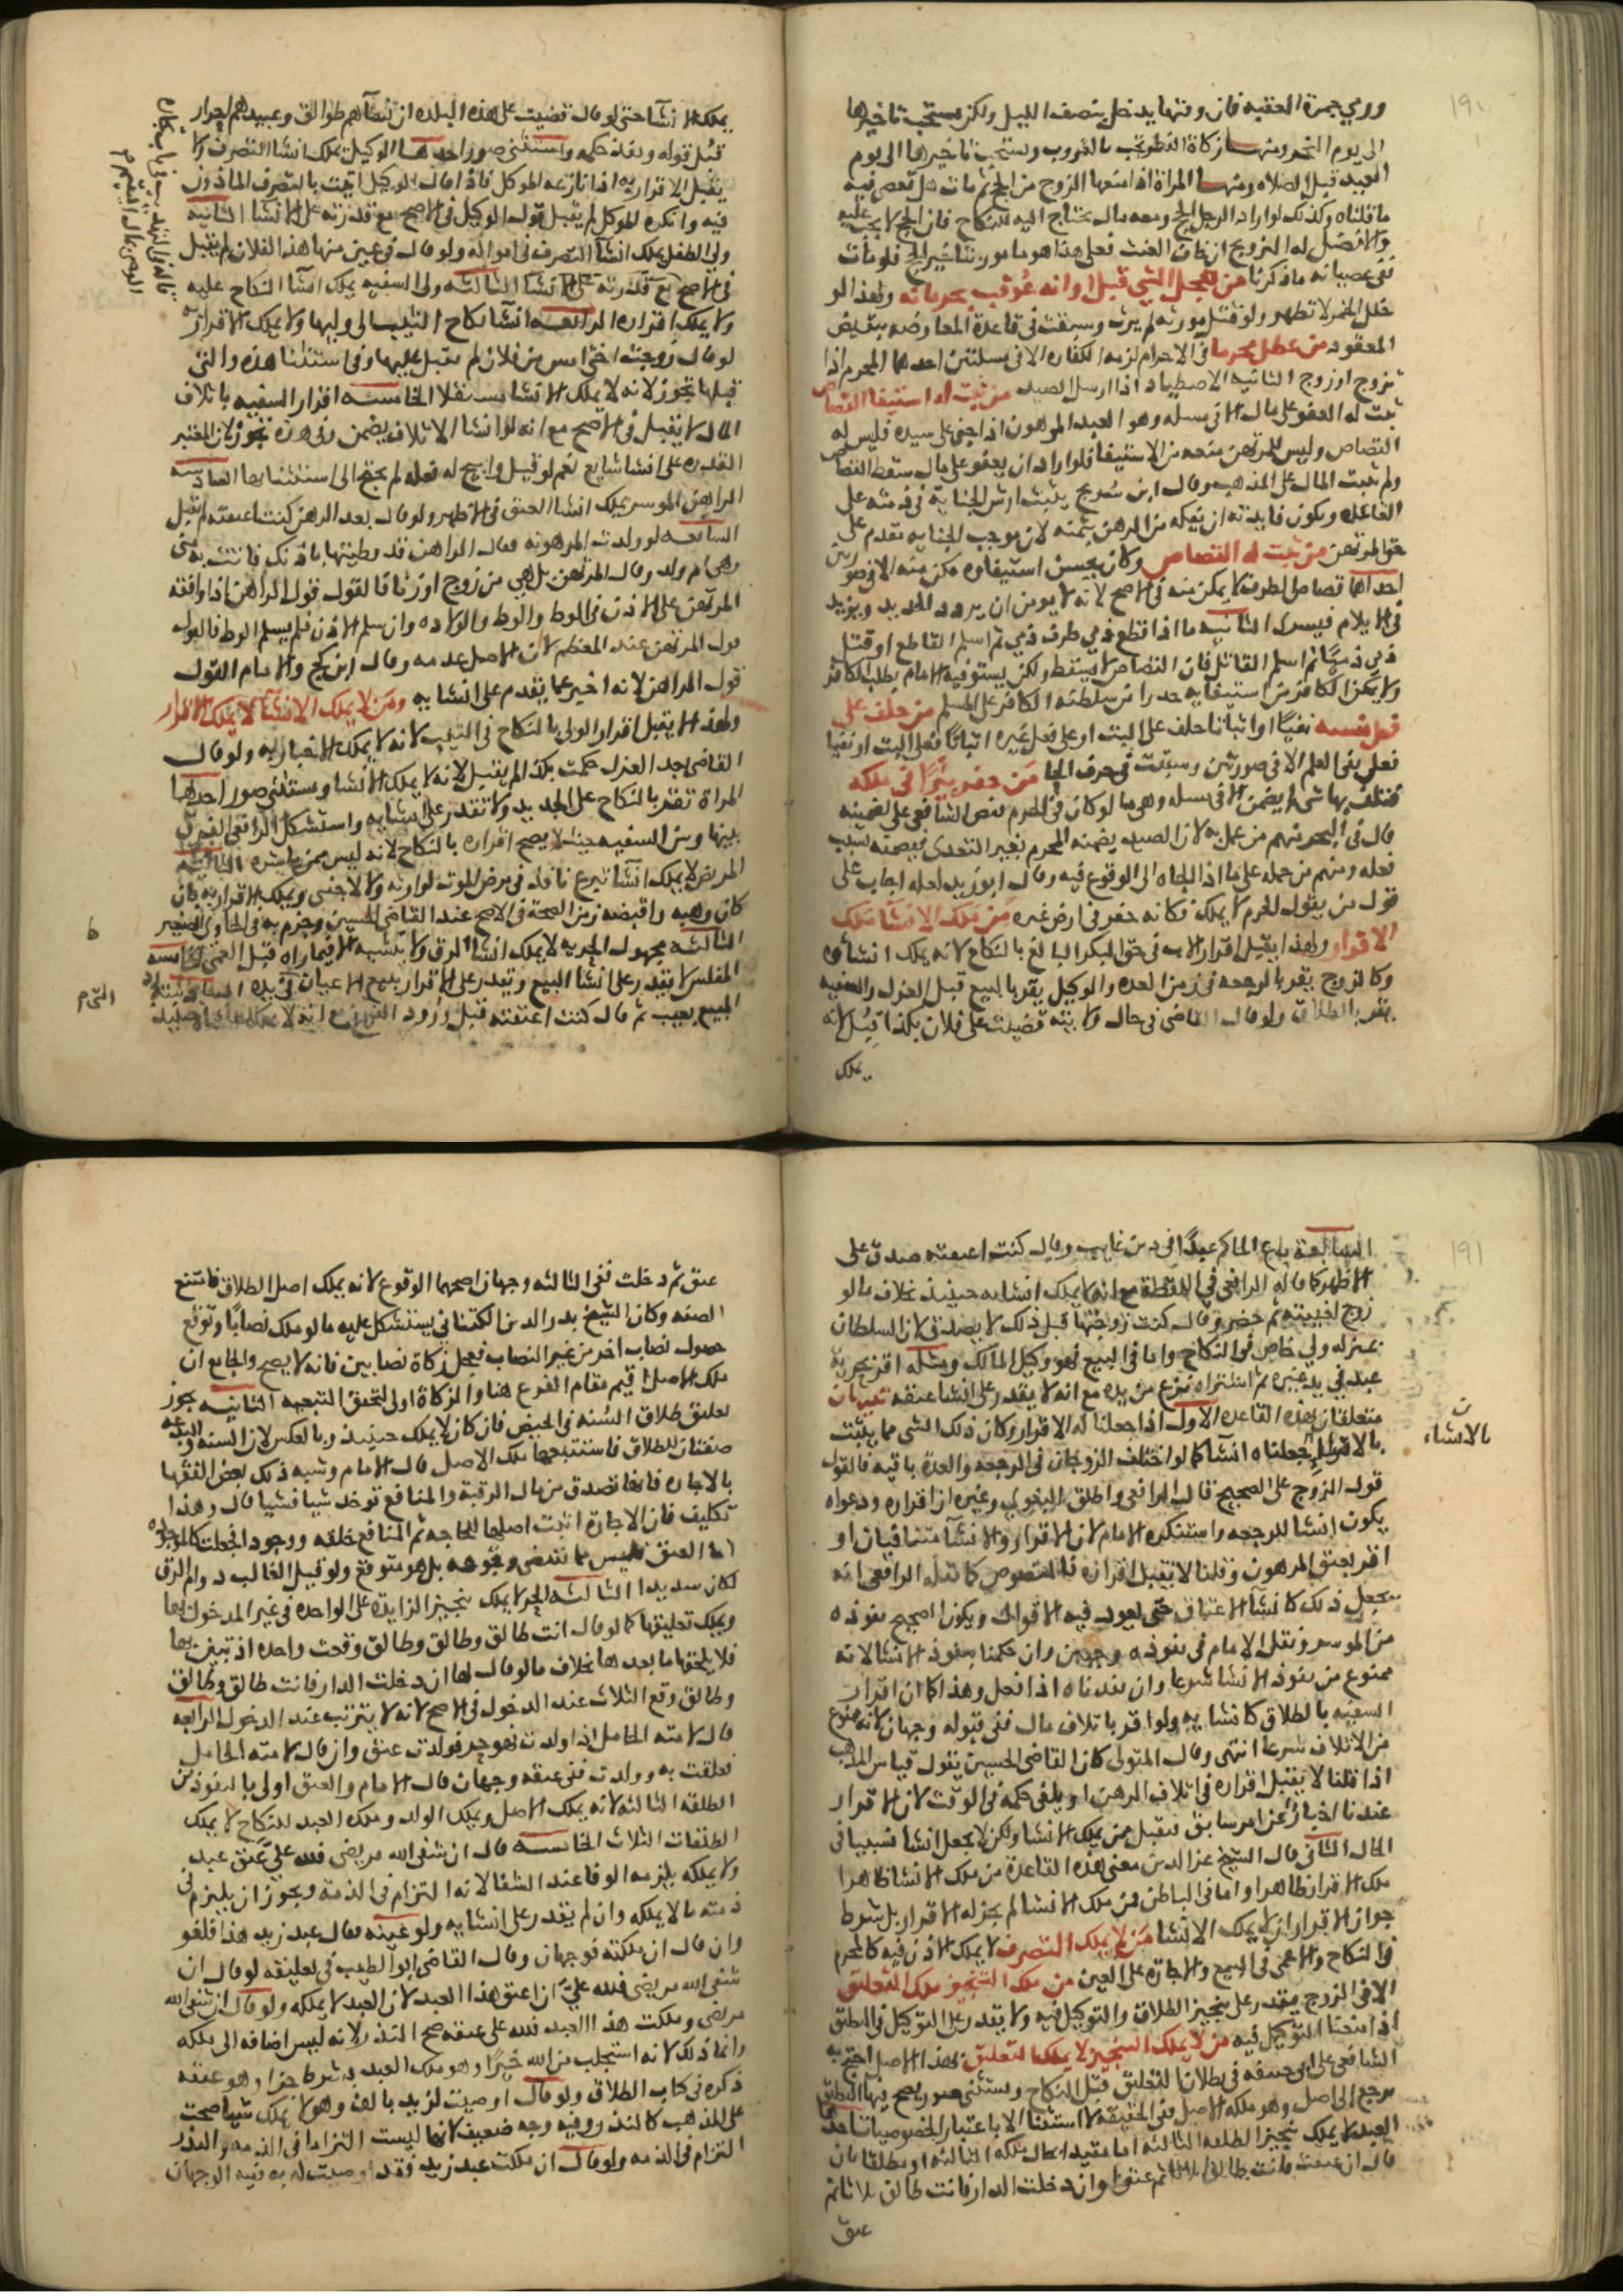 ورمي جمرة العقبه فان وقتها يدخل بنصف الليل ولكن يستحب تاخيرها
الى يوم النحر ومنها زكاة الفطر تجب بالغروب ويستحب تاخيرها الى يوم
العيد قبل الصلاه ومنها المراة اذا منعها الزوج من الحج ثم ماتت هل تعصي فيه
ما قلناه وكذلك لو اراد الرجل الحج ومعه مال يحتاج اليه للنكاح فان الحج لا يجب عليه
والافضل له التزويج ان خاف العنت فعلى هذا هو مامور بتاخير الحج فلو مات
ففي عصيانه ما ذكرنا من تعجل الشي قبل اوانه عوقب بحرمانه ولهذا لو
خلل الخمر لا تطهر ولو قتل مورثه لم يرث وسبقت في قاعدة المعارضه بنقيض
المقصود من عطل محرما في الاحرام لزمه الكفاره الا في مسئلتين احدهما المحرم اذا
تزوج او زوج الثانيه الاصطياد اذا ارسل الصيد من ثبت له استيفا القصاص
ثبت له العفو على مال الا في مسله وهو العبد المرهون اذا جنى على سيده فليس له
القصاص وليس للمرتهن منعه من الاستيفا فلو اراد ان يعفو على مال سقط القصاص
ولم يثبت المال على المذهب وقال ابن سريج يثبت ارش الجناية في ذمته على
القاعده ويكون فايدته ان يفكه من الرهن بثمنه لان موجب الجنايه مقدم على
حق المرتهن من ثبت له القصاص وكان يحسن استيفاوه مكن منه الا في صورتين
احداها قصاص الطرف لا يمكن منه في الاصح لانه لا يومن ان يردد الحديد ويزيد
في الايلام فيسري الثانيه ما اذا قطع ذمي طرف ذمي ثم اسلم القاطع او قتل
ذمي ذميًا ثم اسلم القاتل فان القصاص لا يسقط ولكن يستوفيه الامام بطلب الكافر
ولا يمكن الكافر من استيفايه حذرا من سلطنة الكافر على المسلم من حلف على
فعل نفسه نفيًا او اثباتا حلف على البت او على فعل غيره اثباتا فعلى البت او نفيا
فعلى نفي العلم الا في صورتين وسبقت في حرف الحا من حفر بئرًا في ملكه
فتلف بها شي لا يضمن الا في مسله وهي ما لو كان في الحرم فنص الشافعي على تضمينه
قال في البحر منهم من عمل به لان الصيد يضمنه المحرم بغير التعدي فيضمنه بسبب
فعله ومنهم من حمله على ما اذا الجاه الى الوقوع فيه وقال ابو زيد لعله اجاب على
قول من يقول الحرم لا يملك فكانه حفر في ارض غيره من ملك الانشا ملك
الاقرار ولهذا يقبل اقرار الاب في حق البكر البالغ بالنكاح لانه يملك انشاه
وكالزوج يقر بالرجعه في زمن العده والوكيل يقر بالبيع قبل العزل والسفيه
يقر بالطلاق ولو قال القاضي في حال ولايته قضيت على فلان بكذا قبل لانه
يملك
يملك الانشا حتى لو قال قضيت على هذه البلده ان نساهم طوالق وعبيدهم احرار
قبل قوله ونفذ حكمه ويستثنى صور احدها الوكيل يملك انشا التصرف ولا
يقبل الاقرار به اذا نازعه الموكل فاذا قال الوكيل اتيت بالتصرف الماذون
فيه وانكره الموكل لم يقبل قول الوكيل في الاصح مع قدرته على الانشا الثانيه
ولي الطفل يملك انشا التصرف في امواله ولو قال في عين منها هذا لفلان لم يقبل
في الاصح مع قدرته على الانشا الثالثه ولي السفيه يملك انشا النكاح عليه
ولا يملك اقراره به الرابعه انشا نكاح الثيب الى وليها ولا يملك الاقرار به
لو قال زوجت اختي امس من فلان لم يقبل عليها وفي استثنا هذه والتي
قبلها تجوز لانه لا يملك الانشا مستقلا الخامسه اقرار السفيه باتلاف
المال لا يقبل في الاصح مع انه لو انشا الاتلاف يضمن وفي هذه تجوز لان المعتبر
القدره على انشا شايع نعم لو قيل وابيح له فعله لم يحتج الى استثنائها السادسه
الراهن الموسر يملك انشا العتق في الاظهر ولو قال بعد الرهن كنت اعتقته لم يقبل
السابعه لو ولدت المرهونه فقال الراهن قد وطيتها باذنك فاتت به مني
وهي ام ولد وقال المرتهن بل هي من زوج او زنا فالقول قول الراهن اذا وافقه
المرتهن على الاذن في الوط والوط والولاده وان سلم الاذن فلم يسلم الوط فالقول
قول المرتهن عند المعظم لان الاصل عدمه وقال ابن كج والامام القول
قول الراهن لانه اخبر عما يقدم على انشايه ومن لا يملك الانشا لا يملك الاقرار
ولهذا لا يقبل اقرار الولي بالنكاح في الثيب لانه لا يملك الاجبار به ولو قال
القاضي بعد العزل حكمت بكذا لم يقبل لانه لا يملك الانشا ويستثنى صور احدها
المراة تقر بالنكاح على الجديد ولا تقدر على انشايه واستشكل الرافعي الفرق
بينها وبين السفيه حيث لا يصح اقراره بالنكاح لانه ليس ممن يباشره الثانيه
المريض لا يملك انشا تبرع نافذ في مرض الموت لوارثه ولا لاجنبي ويملك الاقرار به بان
كان وهبه واقبضه زمن الصحة في الاصح عند القاضي الحسين وجزم به في الحاوي الصغير
الثالثه مجهول الحريه لا يملك انشا الرق
المفلس لا يقدر على انشا البيع ويقدر على الاقرار ببيع الاعيان في يده
المبيع بعيب ثم قال كنت اعتقته قبل
السابعة باع الحاكم عبدًا في دين غايب وقال كنت اعتقته صدق على
الاظهر كما قاله الرافعي في اللقطة مع انه لا يملك انشايه حينيذ بخلاف ما لو
زوج لغيبته ثم حضر وقال كنت زوجتها قبل ذلك لا يصدق لان السلطان
بمنزله ولي خاص في النكاح واما في البيع فهو وكيل المالك ومثله اقر بحرية
عبد في يد غيره ثم اشتراه نزع من يده مع انه لا يقدر على انشا عتقه تنبيهان
متعلقان بهذه القاعده الاول اذا جعلنا له الاقرار وكان ذلك الشي مما يثبت
بالاقرار جعلناه انشا كما لو اختلف الزوجان في الرجعه والعدة باقيه فالقول
بالانشاء
قول الزوج على الصحيح قال الرافعي واطلق البغوي وغيره ان اقراره ودعواه
يكون انشا للرجعه واستنكره الامام لان الاقرار والانشا متنافيان او
اقر بعتق المرهون وقلنا لا يقبل اقراره فالمنصوص كما نقله الرافعي انه
يجعل ذلك كانشا الاعتاق حتى يعود فيه الاقوال ويكون الصحيح نفوذه
من الموسر ونقل الامام في نفوذه وجهين وان حكمنا بنفوذ الانشا لانه
ممنوع من نفوذ الانشا شرعا وان نفذناه اذا فعل وهذا كما ان اقرار
السفيه بالطلاق كانشايه ولو اقر باتلاف مال ففي قبوله وجهان لانه ممنوع
من الاتلاف شرعا انتهى وقال المتولي كان القاضي الحسين يقول قياس المذهب
اذا قلنا لا يقبل اقراره في اتلاف الرهن او يلغى حكمه في الوقت لان الاقرار
عندنا اخبار عن امر سابق فيقبل ممن يملك الانشا ولكن لا يجعل انشا تسببا في
الحال الثاني قال الشيخ عز الدين معنى هذه القاعدة من ملك الانشا ظاهرا
ملك الاقرار ظاهرا واما في الباطن فمن ملك الانشا لم يجز له الاقرار بل شرط
جواز الاقرار ان لا يملك الانشا من لا يملك التصرف لا يملك الاذن فيه كالمحرم
في النكاح والاعمى في البيع والاجازه على العين من ملك التنجيز ملك التعليق
الا في الزوج يقدر على تنجيز الطلاق والتوكيل فيه ولا يقدر على التوكيل في التعليق
اذا منعنا التوكيل فيه من لا يملك التنجيز لا يملك التعليق وهذا الاصل احتج به
الشافعي على ابي حنيفه في بطلان التعليق قبل النكاح ويستثنى صور يصح فيها التعليق
يرجع الى اصل وهو ملكه الاصل ففي الحقيقه لا استثنا الا باعتبار الخصوصيات احدها
العبد لا يملك تنجيز الطلقه الثالثه اما مقيدا بحال ملكه الثالثه او مطلقا فان
قال ان عتقت فانت طالق ثلاثا ثم عتق او ان دخلت الدار فانت طالق ثلاثا ثم
عتق
عتق ثم دخلت ففي الثالثه وجهان اصحهما الوقوع لانه يملك اصل الطلاق فاستتبع
الصفه وكان الشيخ بدر الدين الكتناني يستشكل عليه ما لو ملك نصابا وتوقع
حصول نصاب اخر من غير النصاب فعجل زكاة نصابين فانه لا يصح والجامع ان
ملك الاصل اقيم مقام الفرع هنا والزكاة اولى لتحقق التبعيه الثانيه يجوز
تعليق طلاق السنه في الحيض فان كان لا يملك حينيذ وبالعكس لان السنه والبدعه
صفتان للطلاق فاستتبعهما ملك الاصل قال الامام وشبه ذلك بعض الفقها
بالاجاره فانها تصدق من مال الرقبة والمنافع توخذ شيا فشيا قال وهذا
تكليف فان الاجارة اثبت اصلها للحاجه ثم المنافع خلقه ووجود الجعلت كالموجوده
اما العتق فليس مما تقتضي وقوعه بل هو متوقع ولو قيل الغالب دوام الرق
لكان سديدا الثالثه الحر لا يملك تنجيز الزايدة على الواحده في غير المدخول بها
ويملك تعليقها كما لو قال انت طالق وطالق وطالق وقعت واحده اذ تبين بها
فلا يلحقها ما بعدها بخلاف ما لو قال لها ان دخلت الدار فانت طالق وطالق
وطالق وقع الثلاث عند الدخول في الاصح لانه لا يترتب عند الدخول الرابعه
قال لامته الحامل اذا ولدت فهو حر فولدت عتق وان قال لامته الحايل
فعلقت به وولدت ففي عتقه وجهان قال الامام والعتق اولى بالنفوذ من
الطلقه الثالثه لانه يملك الاصل ويملك الولد وملك العبد للنكاح لا يملك
الطلقات الثلاث الخامسه قال ان شفى الله مريضي فلله علي عتق عبد
ولا يملكه يلزمه الوفا عند الشفا لانه التزام في الذمة ويجوز ان يلزم في
ذمته ما لا يملكه وان لم يقدر على انشايه ولو عينه فقال عبد زيد هذا فلغو
وان قال ان ملكته فوجهان وقال القاضي ابو الطيب في تعليقه لو قال ان
شفى الله مريضي فلله علي ان اعتق هذا العبد لان العبد لا يملكه ولو قال ان شفى الله
مريضي وملكت هذا العبد فلله علي عتقه صح النذر لانه ليس اضافه الى ملكه
وانما ذلك لانه استجلب من الله خيرًا وهو ملك العبد بشرط جزا وهو عتقه
ذكره في كتاب الطلاق ولو قال اوصيت لزيد بالف وهو لا يملك شيا صحت
على المذهب كالنذر وفيه وجه ضعيف لانها ليست التزاما في الذمه والنذر
التزام في الذمه ولو قال ان ملكت عبد زيد فقد اوصيت له به فيه الوجهان